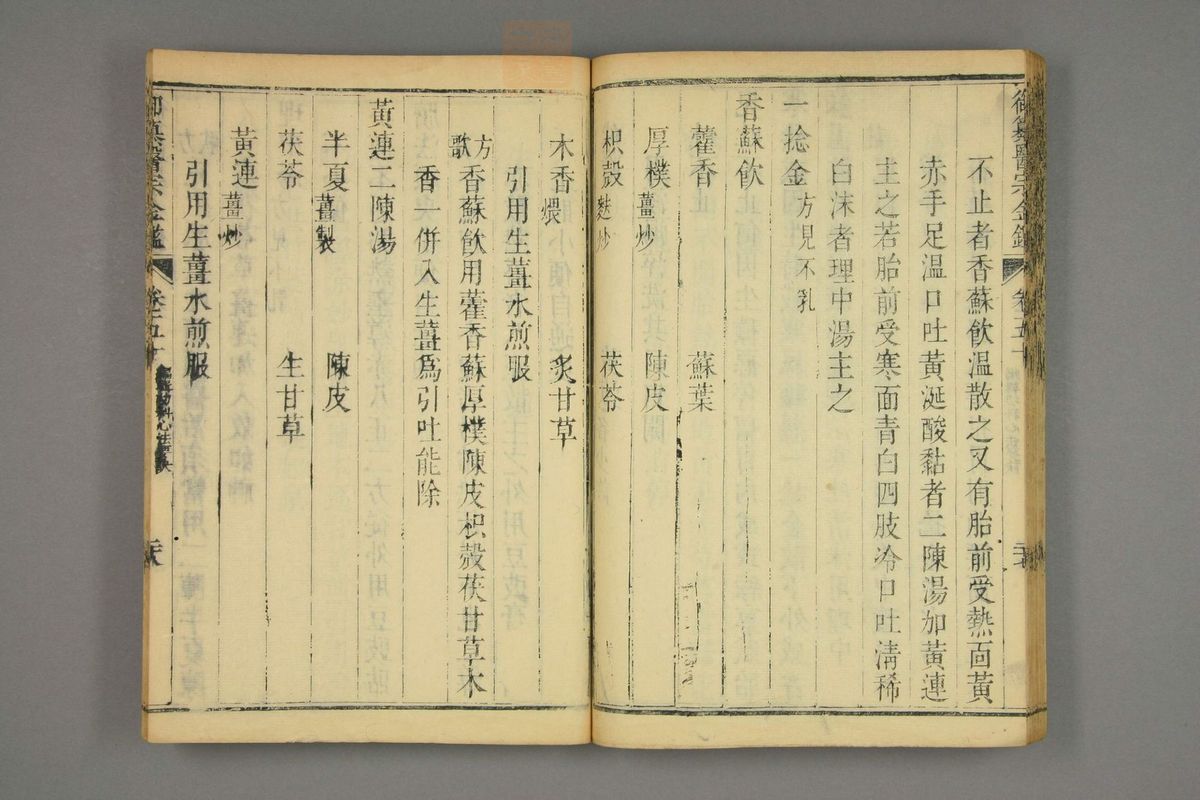 御纂醫宗金鑑 卷五十
不止者香蘇飲溫散之又有胎前受熱面黃
赤手足溫口吐黃涎酸黏者二陳湯加黃連
主之若胎前受寒面青白四肢冷口吐清稀
白沫者理中湯主之
一捻金方見不乳
香蘇飲
藿香 蘇葉
厚樸薑炒 陳皮
枳殼麩炒 茯苓
木香煨 炙甘草
引用生薑水煎服
方歌 香蘇飲用藿香蘇厚樸陳皮枳殼茯甘草木
香一併入生薑為引吐能除
黃連二陳湯
半夏薑製 陳皮
茯苓 生甘草
黃連薑炒
引用生薑水煎服
御纂醫宗金鑑 卷五十 編輯幼科心法要訣